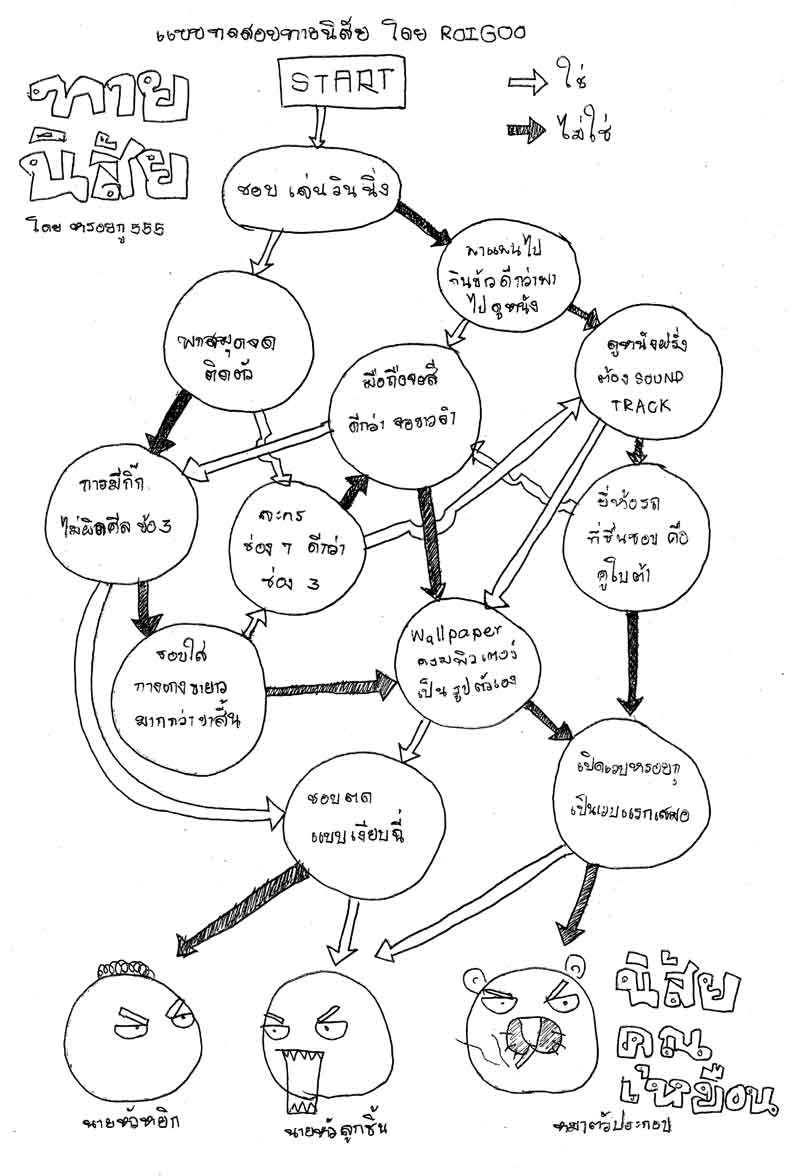 แบบทดสอบทายนิสัย โดย ROIGOO
ทาย
นิสัย
โดย หรอยกู 555
START
ใช่
ไม่ใช่
ชอบ เล่นวินนิ่ง
พาแฟนไป
กินข้าวดีกว่าพา
ไปดูหนัง
พกสมุดจด
ติดตัว
มือถือจอสี
ดีกว่า จอขาวดำ
ดูหนังฝรั่ง
ต้อง SOUND
TRACK
การมีกิ๊ก
ไม่ผิดศีล ข้อ 3
ละคร
ช่อง 7 ดีกว่า
ช่อง 3
ยี่ห้อรถ
ที่ชื่นชอบ คือ
คูโบต้า
ชอบใส่
กางเกงขายาว
มากกว่าขาสั้น
Wallpaper
คอมพิวเตอร์
เป็น รูปตัวเอง
ชอบตด
แบบเงียบฉี่
เปิดเวบหรอยกู
เป็นเวบแรกเสมอ
นายหัวหยิก
นายหัวลูกชิ้น
หมาตัวประกอบ
นิสัย
คุณ
เหมือน